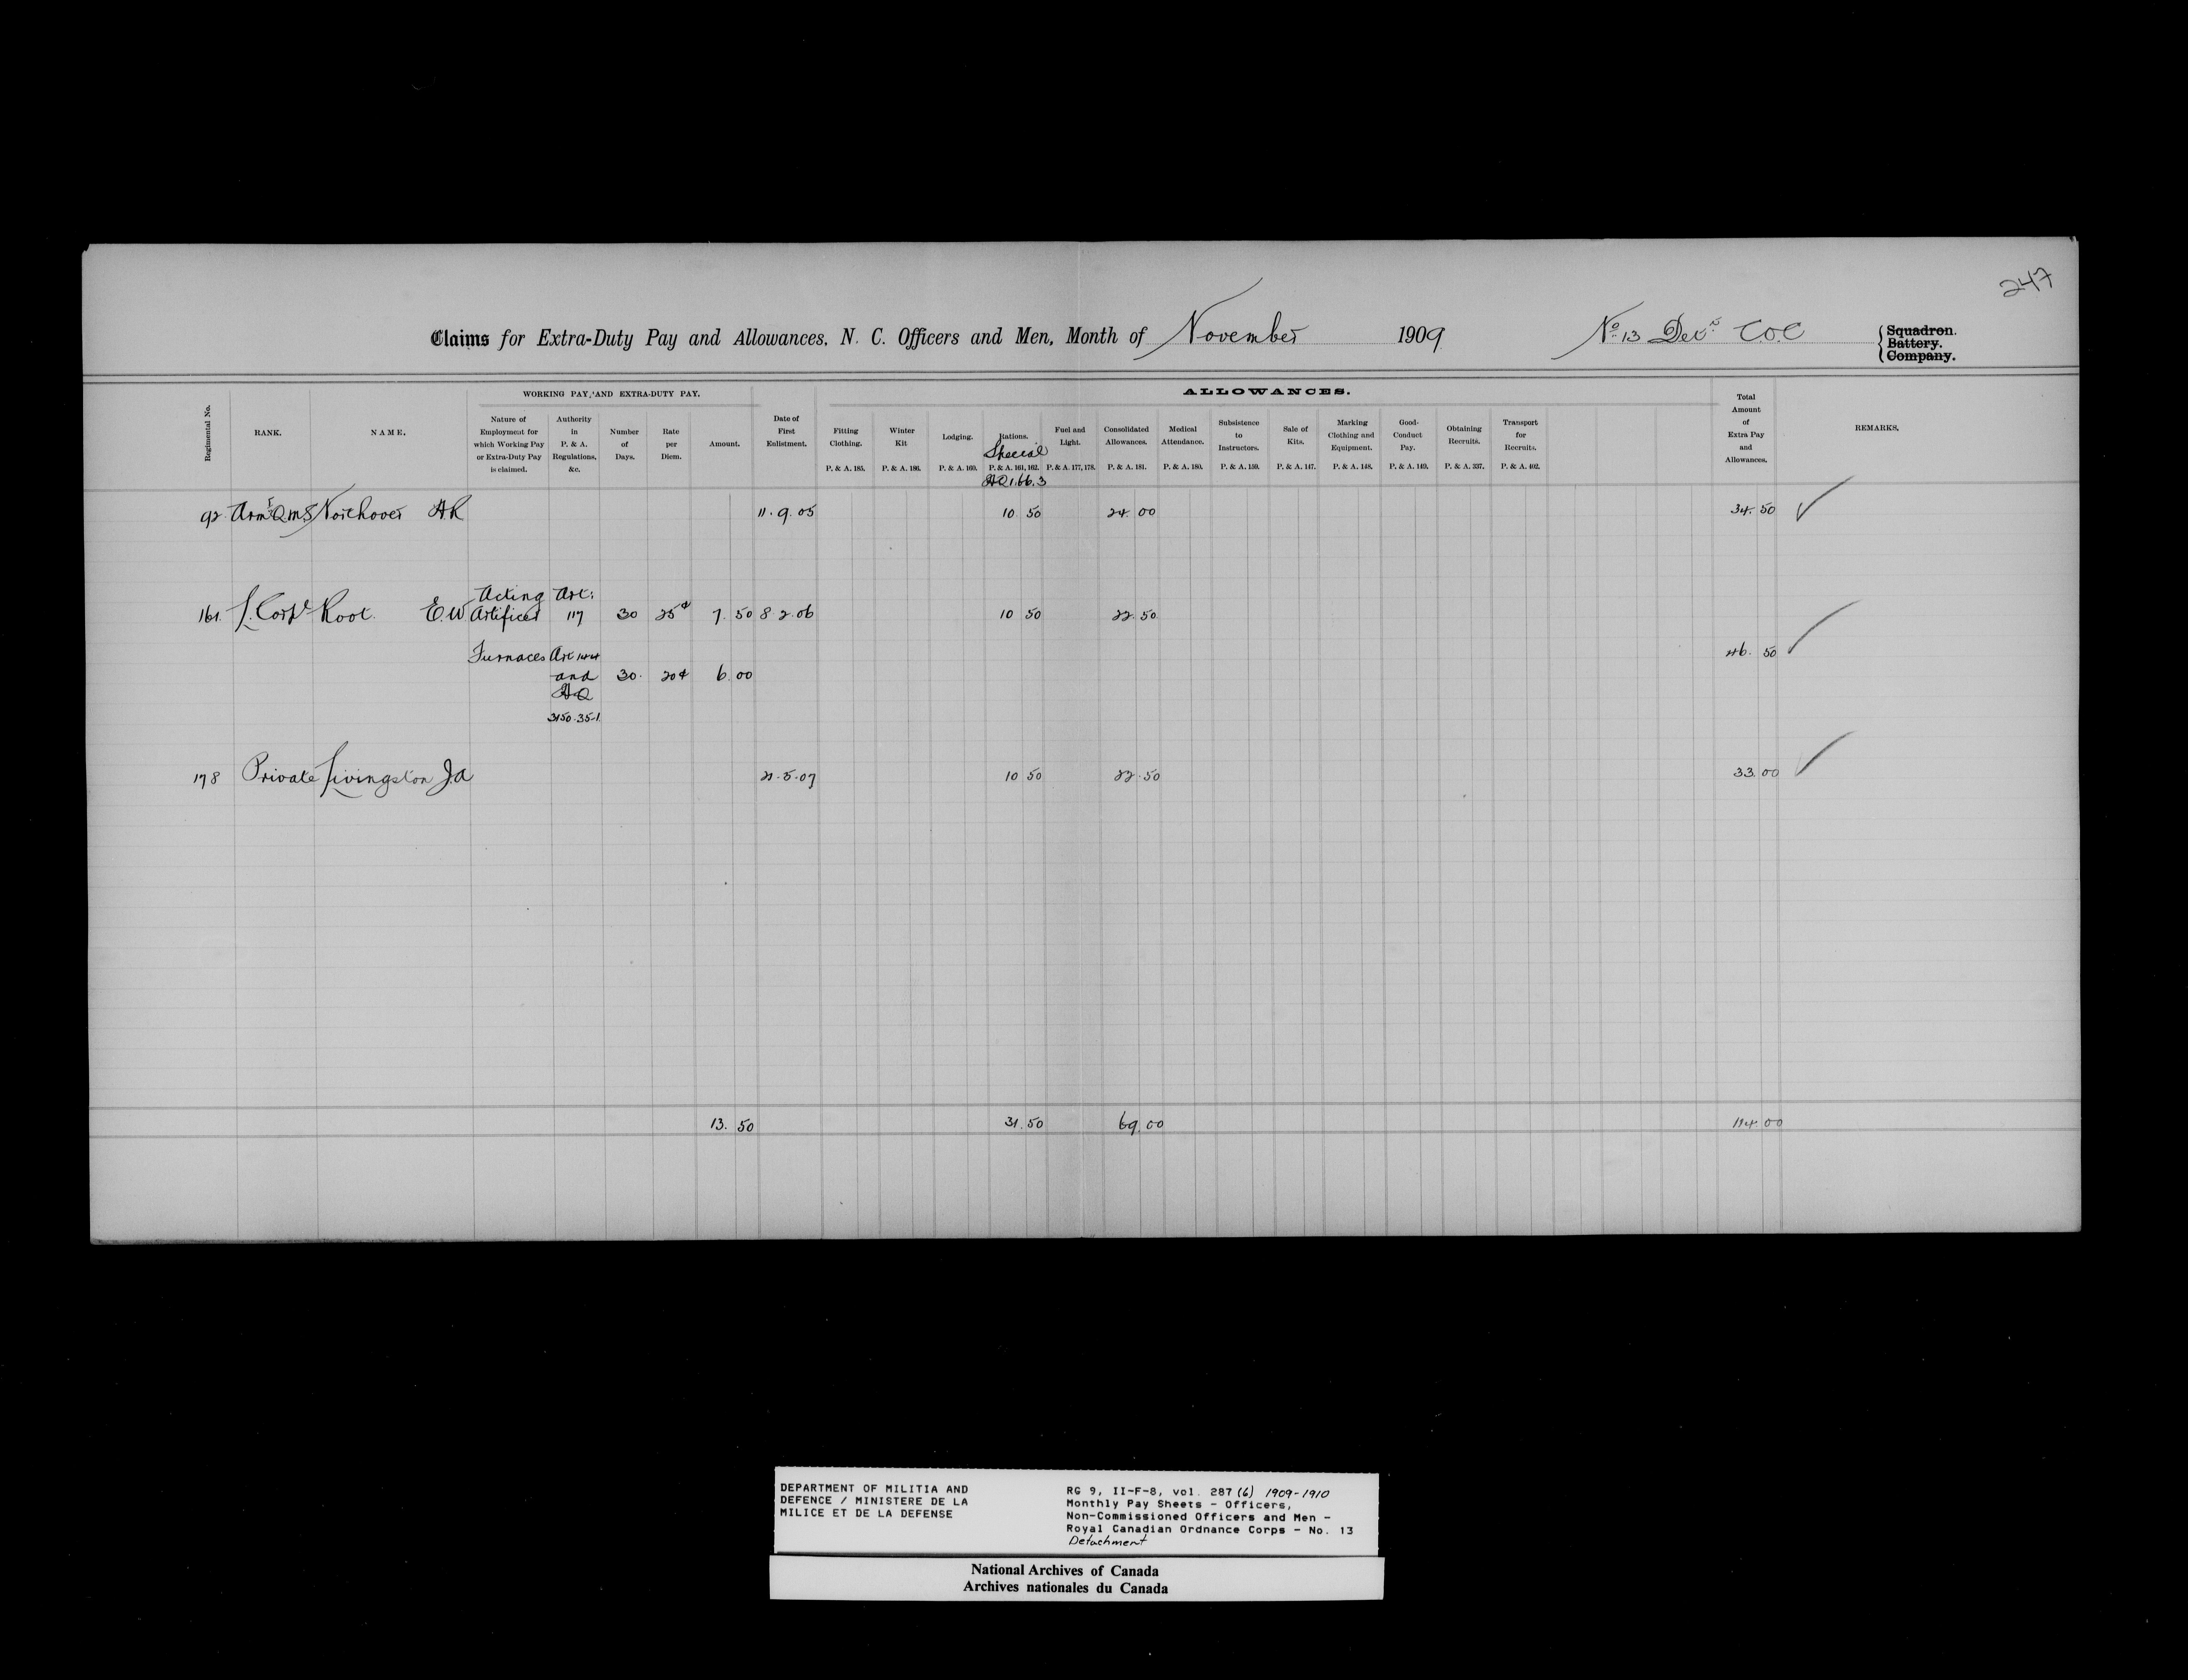 247
Claims for Extra-Duty Pay and Allowances, N. C. Officers and Men, Month of November 1909 No 13 Det C.O.C { Squadron. Battery. Company.
WORKING PAY, AND EXTRA-DUTY PAY. ALLOWANCES.
Regimental No.
RANK.
NAME.
Nature of Employment for which Working Pay or Extra-Duty Pay is claimed.
Authority in P. & A. Regulations, &c.
Number of Days.
Rate per Diem.
Amount.
Date of First Enlistment.
Fitting Clothing. P. & A. 185.
Winter Kit P. & A. 186.
Lodging. P. & A. 160.
Rations. Special P. & A. 161, 162. HQ 1.66.3
Fuel and Light. P. & A. 177, 178.
Consolidated Allowances. P. & A. 181.
Medical Attendance. P. & A. 180.
Subsistence to Instructors. P. & A. 159.
Sale of Kits. P. & A. 147.
Marking Clothing and Equipment. P. & A. 148.
Good-Conduct Pay. P. & A. 149.
Obtaining Recruits. P. & A. 337.
Transport for Recruits. P. & A. 402.
Total Amount of Extra Pay and Allowances.
REMARKS.
92 Armr QMS Northover AR 11.9.05 10 50 24.00 34.50
Acting Art:
161 L. Corpl Root. E.W Artificer 117 30 25¢ 7.50 8 2.06 10 50 22.50
Furnaces Art 144 46.50
and 30. 20¢ 6.00
HQ
3150.35-1
178 Private Livingston J.A 21.5.07 10 50 22.50 33.00
13.50 31.50 69.00 114.00
DEPARTMENT OF MILITIA AND
DEFENCE / MINISTERE DE LA
MILICE ET DE LA DEFENSE
RG 9, II-F-8, vol. 287 (6) 1909-1910
Monthly Pay Sheets - Officers,
Non-Commissioned Officers and Men -
Royal Canadian Ordnance Corps - No. 13
Detachment
National Archives of Canada
Archives nationales du Canada